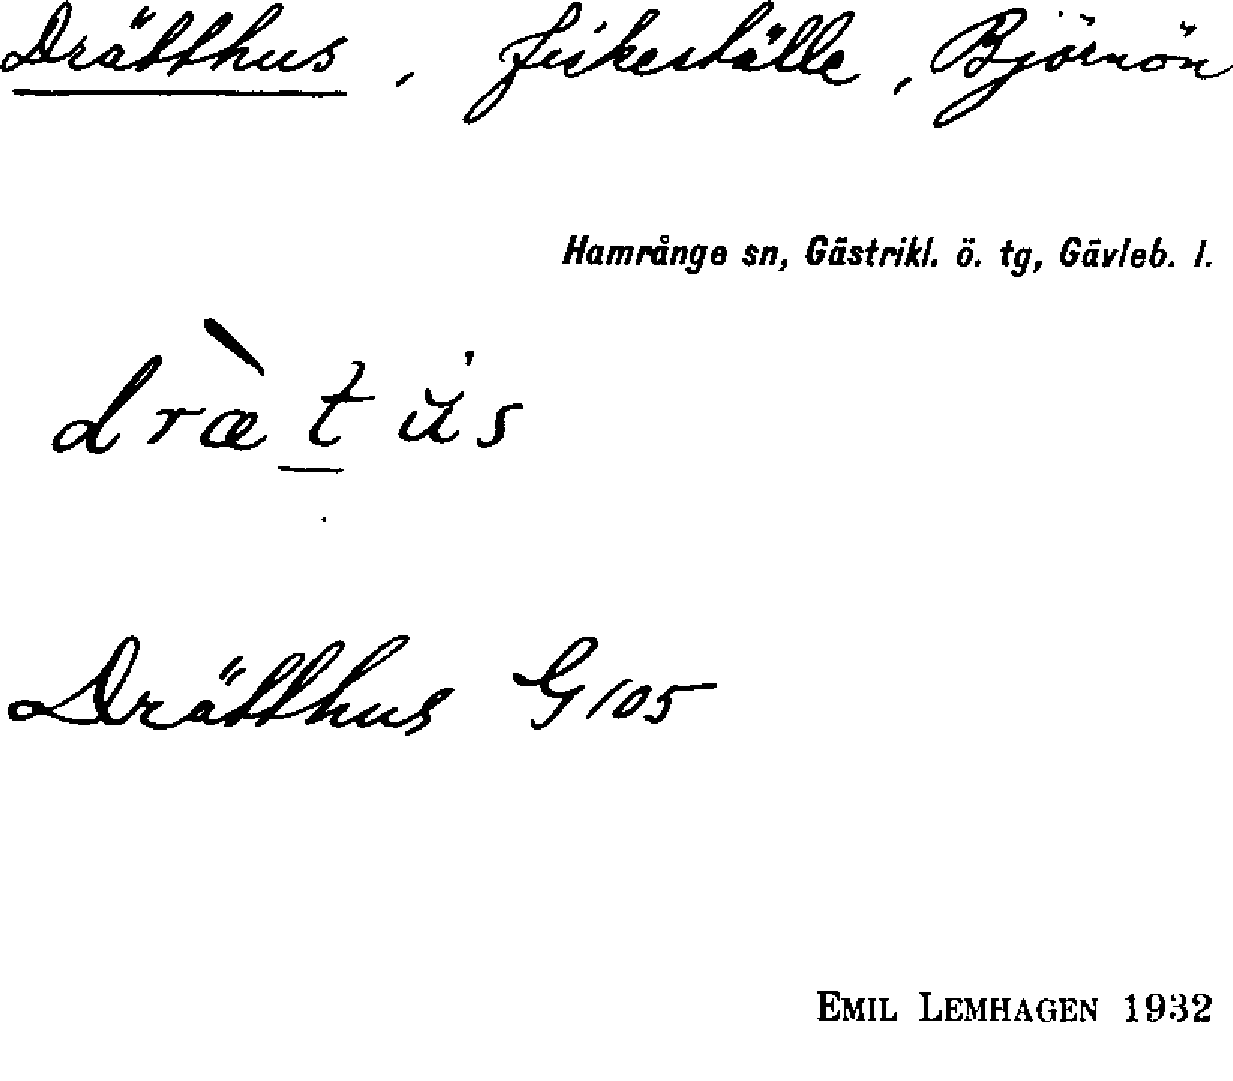 Drätthus, fiskeställe, Björnön
Hamrånge sn, Gästrikl. ö. tg, Gävleb. l.
dræ̀t ŭ's
Drätthus G105
EMIL LEMHAGEN 1932